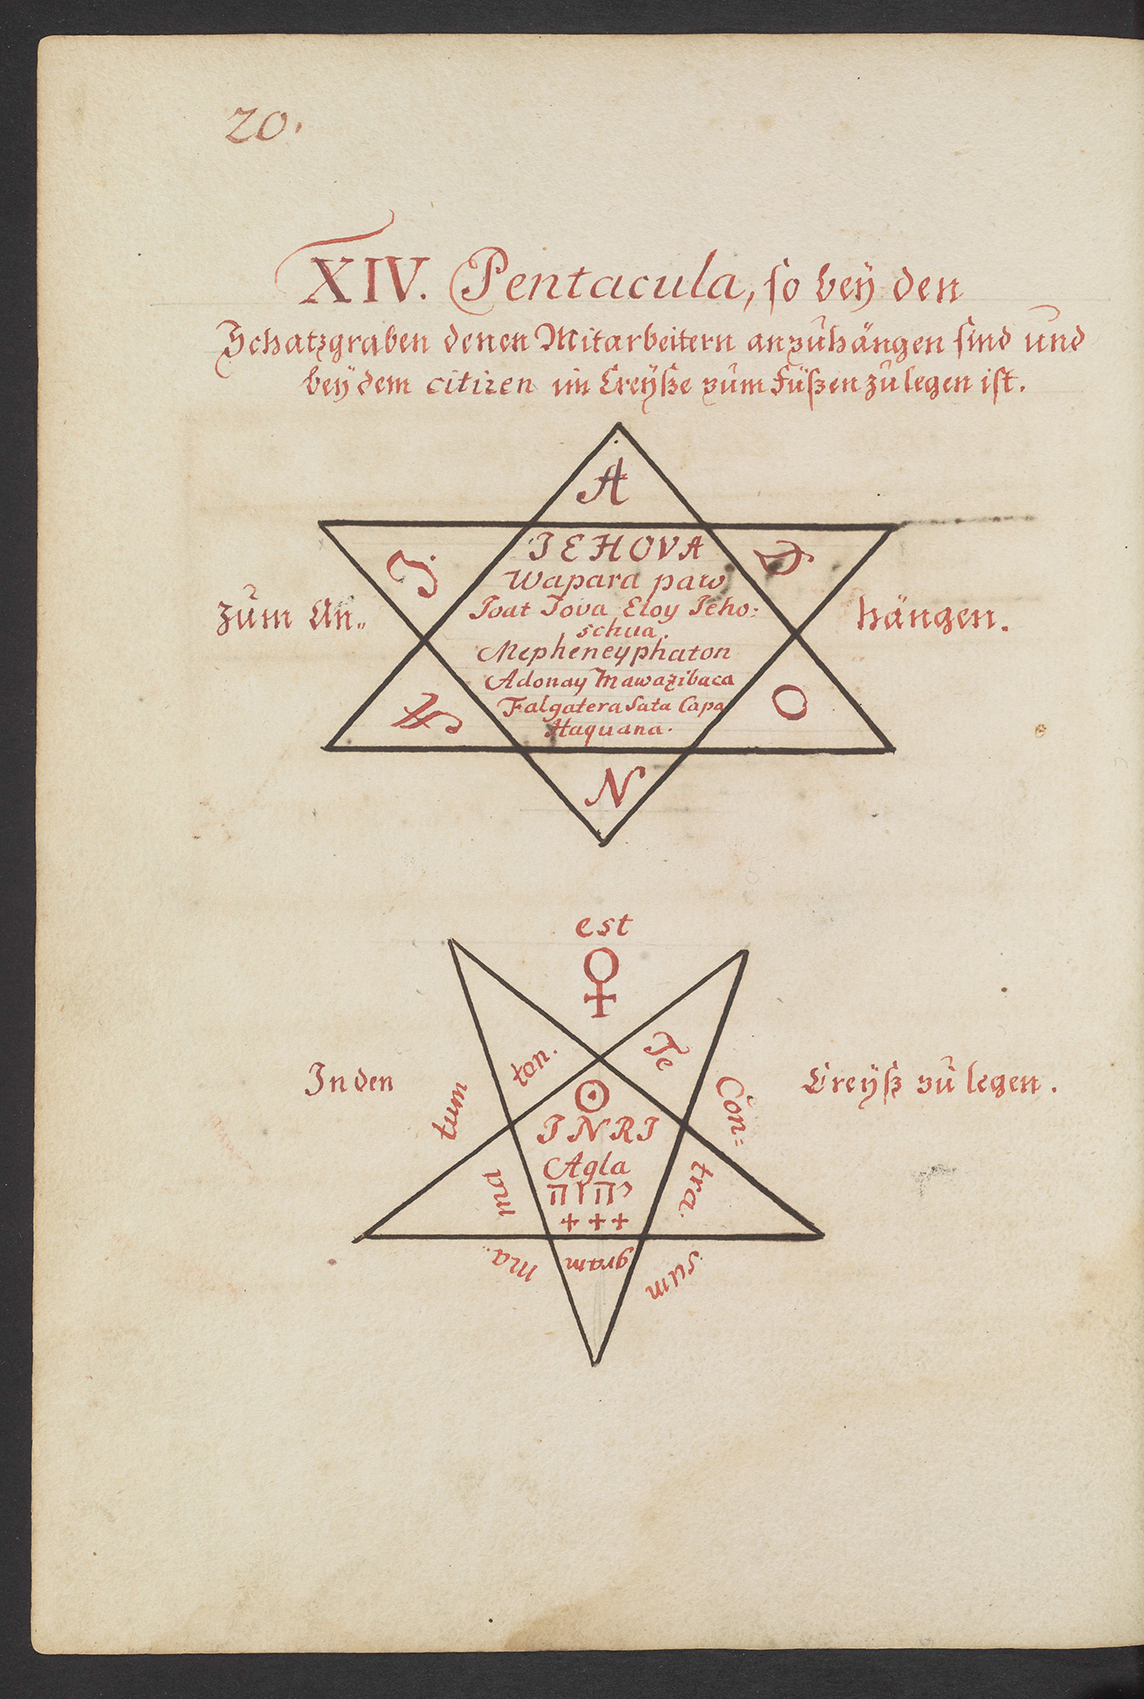 20.
XIV. Pentacula, so beÿ den
Schatzgraben denen Mitarbeitern anzuhängen sind und
beÿ dem citiren im Creÿße zum Füßen zu legen ist.
A
J.
D
JEHOVA
Wapara paw
Joat Jova Eloy Jeho:
schua.
Mepheneyphaton
Adonay Mawazibaca
Falgatera Sata Capa
Haquana.
zum An„
hängen.
O
N
est
♀
ton.
Te
In den
Creÿß zu legen.
tum
Con=
☉
JNRJ
Agla
יהוה
+++
ma
tra.
ma.
gram
sum